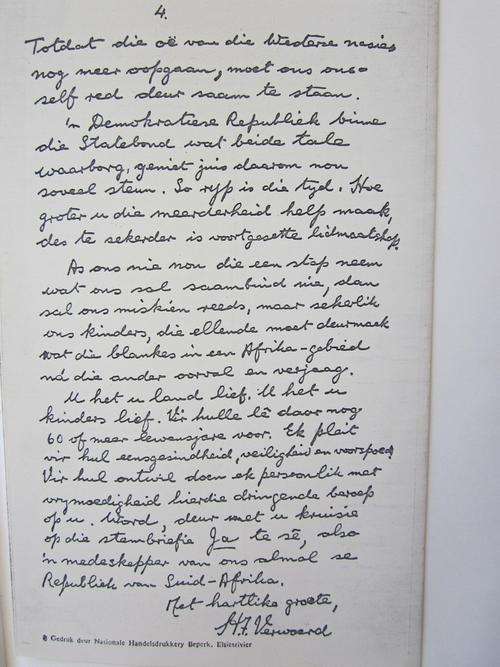 4.
Totdat die oë van die Westerse nasies
nog meer oopgaan, moet ons ons-
self red deur saam te staan.
'n Demokratiese Republiek binne
die Statebond wat beide tale
waarborg, geniet juis daarom nou
soveel steun. So ryp is die tyd. Hoe
groter u die meerderheid help maak,
des te sekerder is voortgesette lidmaatskap.
As ons nie nou die een stap neem
wat ons sal saambind nie, dan
sal ons miskien reeds, maar sekerlik
ons kinders, die ellende moet deurmaak
wat die blankes in een Afrika-gebied
ná die ander oorval en verjaag.
U het u land lief. U het u
kinders lief. Vir hulle lê daar nog
60 of meer lewensjare voor. Ek pleit
vir hul eensgesindheid, veiligheid en voorspoed
Vir hul ontwil doen ek persoonlik met
vrymoedigheid hierdie dringende beroep
op u. Word, deur met u kruisie
op die stembriefie Ja te sê, also
'n medeskepper van ons almal se
Republiek van Suid-Afrika.
Met hartlike groete,
H.F. Verwoerd
Gedruk deur Nasionale Handelsdrukkery Beperk, Elsiesrivier